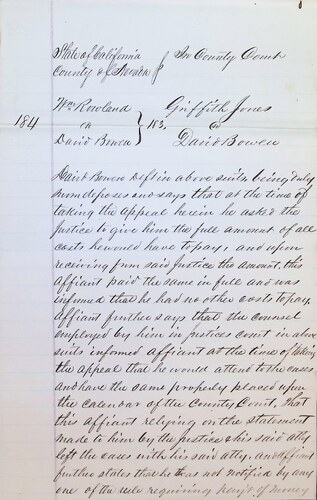 State of California } In County Court
County of Nevada
184
Wm Rowland Griffith Jones
vs } & vs
David Bowen David Bowen
David Bowen Deft in above suits being duly
sworn deposes and says that at the time of
taking the appeal herein he asked the
Justice to give him the full amount of all
costs he would have to pay, and upon
receiving from said Justice the amount, this
affiant paid the same in full and was
informed that he had no other costs to pay.
Affiant further says that the counsel
employed by him in Justices court in above
suits informed affiant at the time of taking
the appeal that he would attend to the cases
and have the same properly placed upon
the calendar of the County Court, that
this affiant relying on the statement
made to him by the Justice & his said atty
left the cases with his said atty. and affiant
further states that he was not notified by any
one of the rule requiring of money